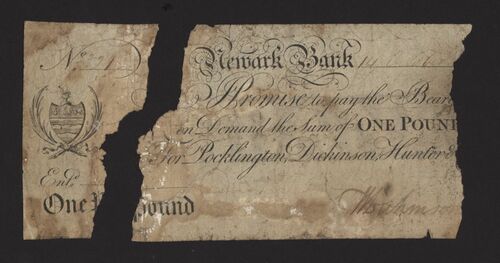 No
Newark Bank
Promise to pay the Bear
on Demand the Sum of ONE POUN
For Pocklington, Dickinson, Hunter &
Entd
One P ound